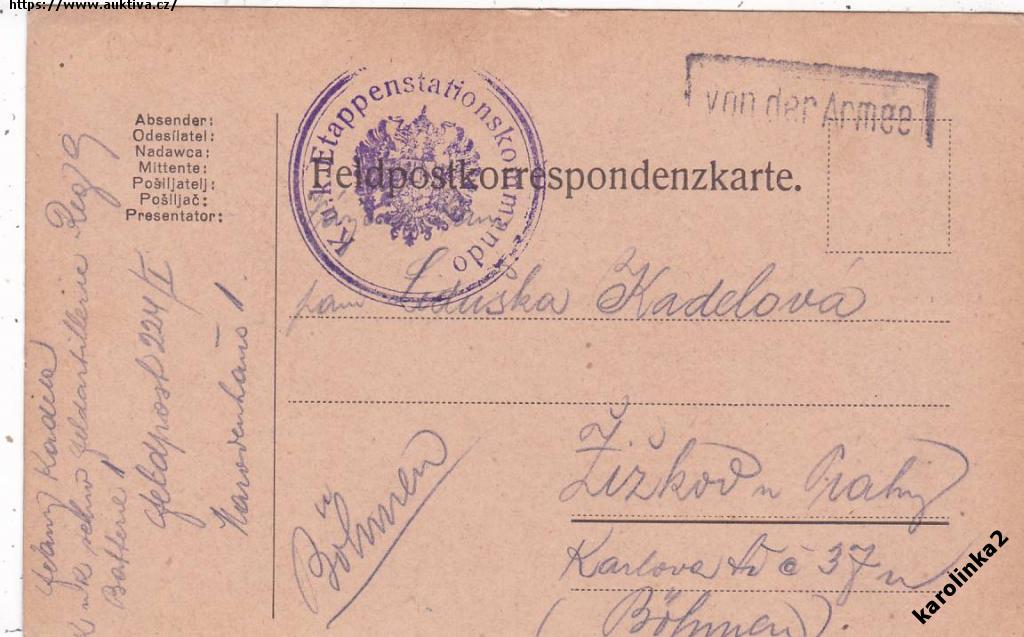 https://www.auktiva.cz/
von der Armee
K.u.k. Etappenstationskommando
Feldpostkorrespondenzkarte.
Absender:
Odesílatel:
Nadawca:
Mittente:
Pošiljatelj:
Pošiljač:
Presentator:
paní Liduška Kadelová
Žižkov u Prahy
Karlova tř č 37 n
(Böhmen).
Böhmen
Kadela
K u k schw Feldartillerie Reg 9
Batterie 1
Feldpost 224/I
1.
karolinka2